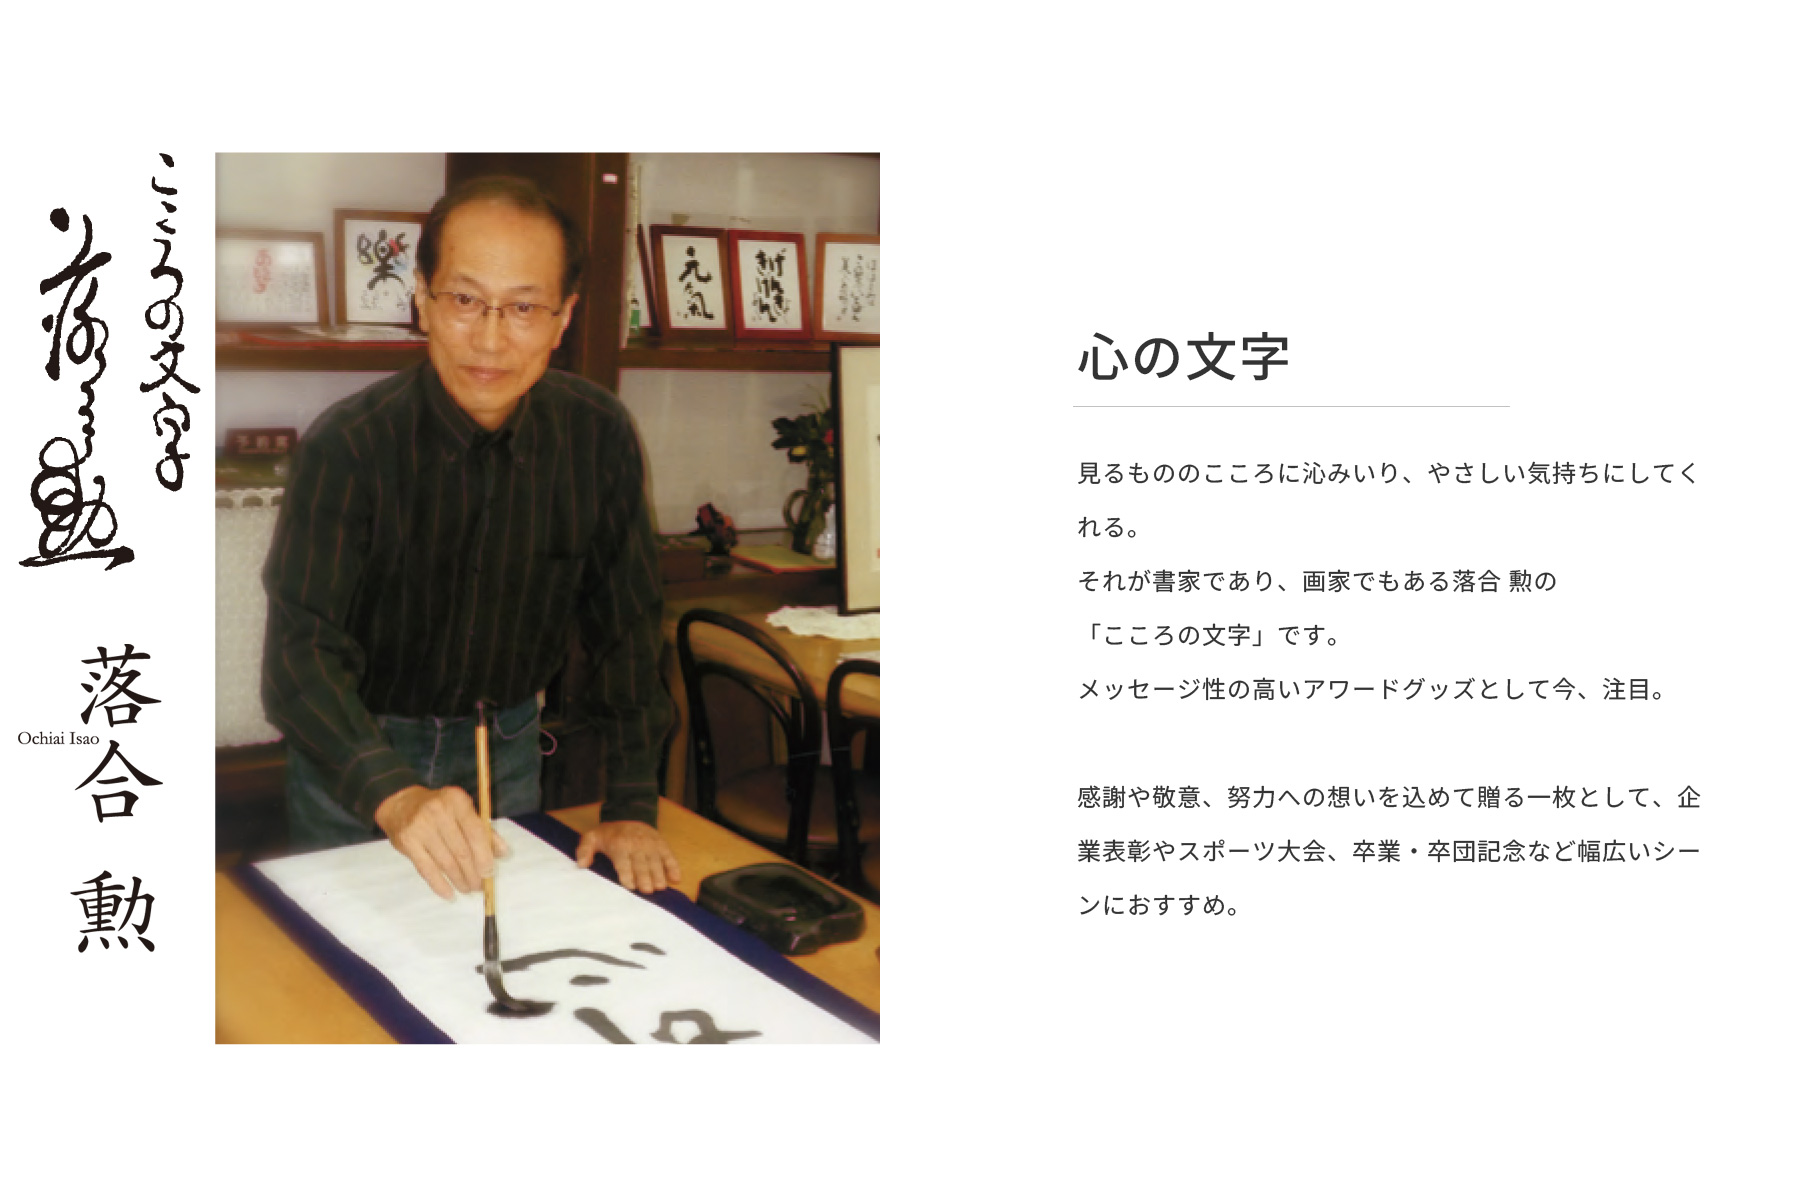 こころの文字
落合勲
落合 勲
Ochiai Isao
樂
元氣
げんき
きげん
予約席
心の文字
見るもののこころに沁みいり、やさしい気持ちにしてく
れる。
それが書家であり、画家でもある落合 勲の
「こころの文字」です。
メッセージ性の高いアワードグッズとして今、注目。
感謝や敬意、努力への想いを込めて贈る一枚として、企
業表彰やスポーツ大会、卒業・卒団記念など幅広いシー
ンにおすすめ。